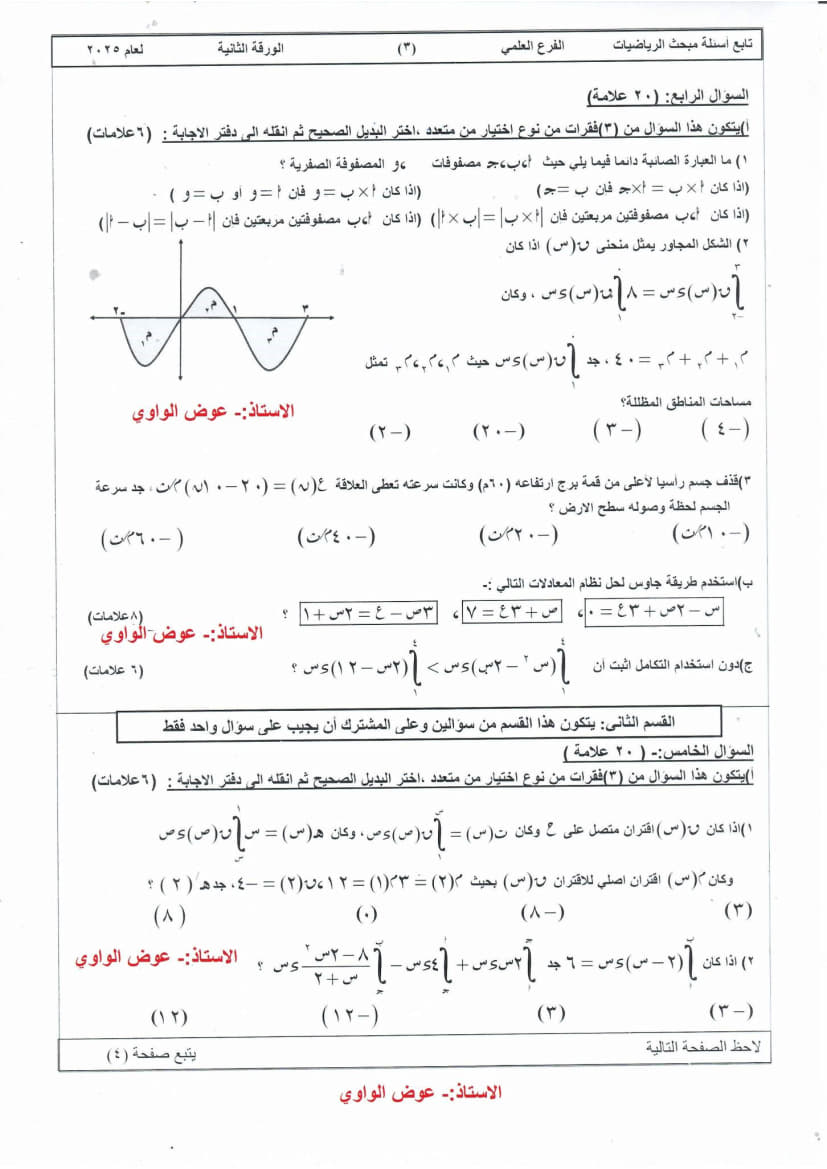 تابع أسئلة مبحث الرياضيات الفرع العلمي (٣) الورقة الثانية لعام ٢٠٢٥
السؤال الرابع: (٢٠ علامة)
أ)يتكون هذا السؤال من (٣)فقرات من نوع اختيار من متعدد ،اختر البديل الصحيح ثم انقله الى دفتر الاجابة : (٦علامات)
١) ما العبارة الصائبة دائما فيما يلي حيث أ،ب،جـ مصفوفات ،و المصفوفة الصفرية ؟
(اذا كان أ×ب = أ×جـ فان ب =جـ) (اذا كان أ×ب =و فان أ =و أو ب =و )
(اذا كان أ،ب مصفوفتين مربعتين فان |أ×ب|=|ب×أ|) (اذا كان أ،ب مصفوفتين مربعتين فان |أ−ب|=|ب−أ|)
٢) الشكل المجاور يمثل منحنى ن(س) اذا كان
∫₋٢^٣ ن(س)ءس = ٨∫١^٠ ن(س)ءس ، وكان
م١ + م٢ + م٣ = ٤٠ ، جد ∫١^٠ ن(س)ءس حيث م١،م٢،م٣ تمثل
مساحات المناطق المظللة؟
(−٤ ) (−٣ ) (−٢٠) (−٢)
−٢ ١ ٣
م١ م٢ م٣
الاستاذ:- عوض الواوي
٣)قذف جسم رأسيا لأعلى من قمة برج ارتفاعه (٦٠م) وكانت سرعته تعطى العلاقة ع(ن) = (٢٠−١٠ن)م/ث، جد سرعة
الجسم لحظة وصوله سطح الارض ؟
(−١٠م/ث) (−٢٠م/ث) (−٤٠م/ث) (−٦٠م/ث)
ب)استخدم طريقة جاوس لحل نظام المعادلات التالي :-
س −٢ص +٣ع = ٠ ، ص +٣ع = ٧ ، ٣ص − ع = ٢س +١ ؟ (٨علامات)
الاستاذ:- عوض الواوي
ج)دون استخدام التكامل اثبت أن ∫١^٤ (س٢ −٢س)ءس > ∫١^٤ (٢س−١٢)ءس ؟ (٦ علامات)
القسم الثاني: يتكون هذا القسم من سؤالين وعلى المشترك أن يجيب على سؤال واحد فقط
السؤال الخامس:- ( ٢٠ علامة )
أ)يتكون هذا السؤال من (٣)فقرات من نوع اختيار من متعدد ،اختر البديل الصحيح ثم انقله الى دفتر الاجابة : (٦علامات)
١)اذا كان ن(س) اقتران متصل على ح وكان ت(س) = ∫١^س ن(ص)ءص، وكان هـ(س) = س∫س^١ ن(ص)ءص
وكان م(س) اقتران اصلي للاقتران ن(س) بحيث م(٢) = ٣م(١) = ١٢ ،ن(٢) = −٤، جد هـ′( ٢ ) ؟
(٣) (−٨) (٠) (٨)
٢) اذا كان ∫أ^ب (٢−س)ءس = ٦ جد ∫أ^جـ ٢سءس + ∫جـ^أ ٤ءس − ∫جـ^ب (٨−٢س٢)/(س+٢) ءس ؟
الاستاذ:- عوض الواوي
(−٣) (٣) (−١٢) (١٢)
لاحظ الصفحة التالية يتبع صفحة (٤)
الاستاذ:- عوض الواوي